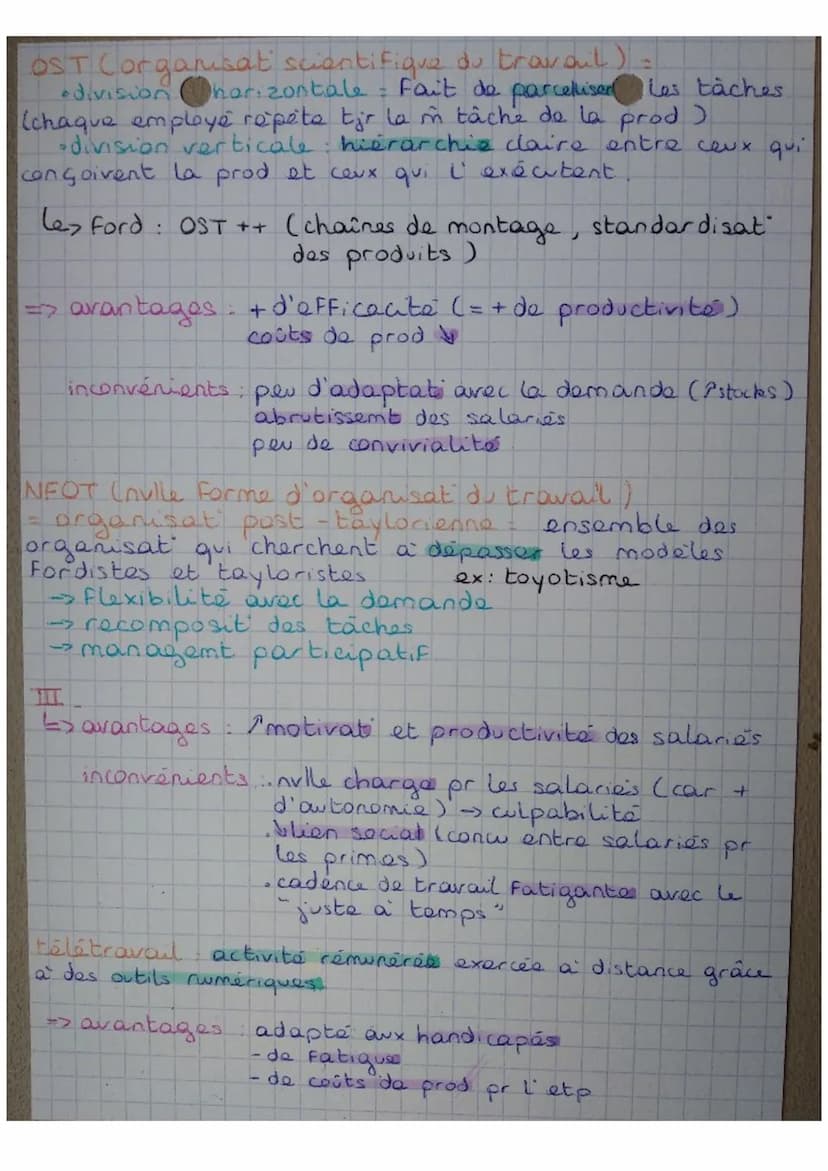 OST (organisat° scientifique du travail) :
• division horizontale : fait de parcelliser les tâches
(chaque employé répète tjr la m̂ tâche de la prod)
• division verticale : hiérarchie claire entre ceux qui
conçoivent la prod et ceux qui l'exécutent.
↳ Ford : OST ++ (chaînes de montage, standardisat°
des produits)
=> avantages : + d'efficacité (= + de productivité)
coûts de prod ↘
inconvénients : peu d'adaptat° avec la demande (↗stocks)
abrutissemt des salariés
peu de convivialité
NFOT (nvlle forme d'organisat° du travail)
= organisat° post-taylorienne : ensemble des
organisat° qui cherchent à dépasser les modèles
Fordistes et tayloristes ex: toyotisme
-> flexibilité avec la demande
-> recomposit° des tâches
-> managemt participatif
III
↳ avantages : ↗motivat° et productivité des salariés
inconvénients : . nvlle charge pr les salariés (car +
d'autonomie) -> culpabilité
. ↘lien social (concu entre salariés pr
les primes)
. cadence de travail fatigantes avec le
"juste à temps"
télétravail : activité rémunérée exercée à distance grâce
à des outils numériques
=> avantages : adapté aux handicapés
- de fatigue
- de coûts de prod pr l'etp